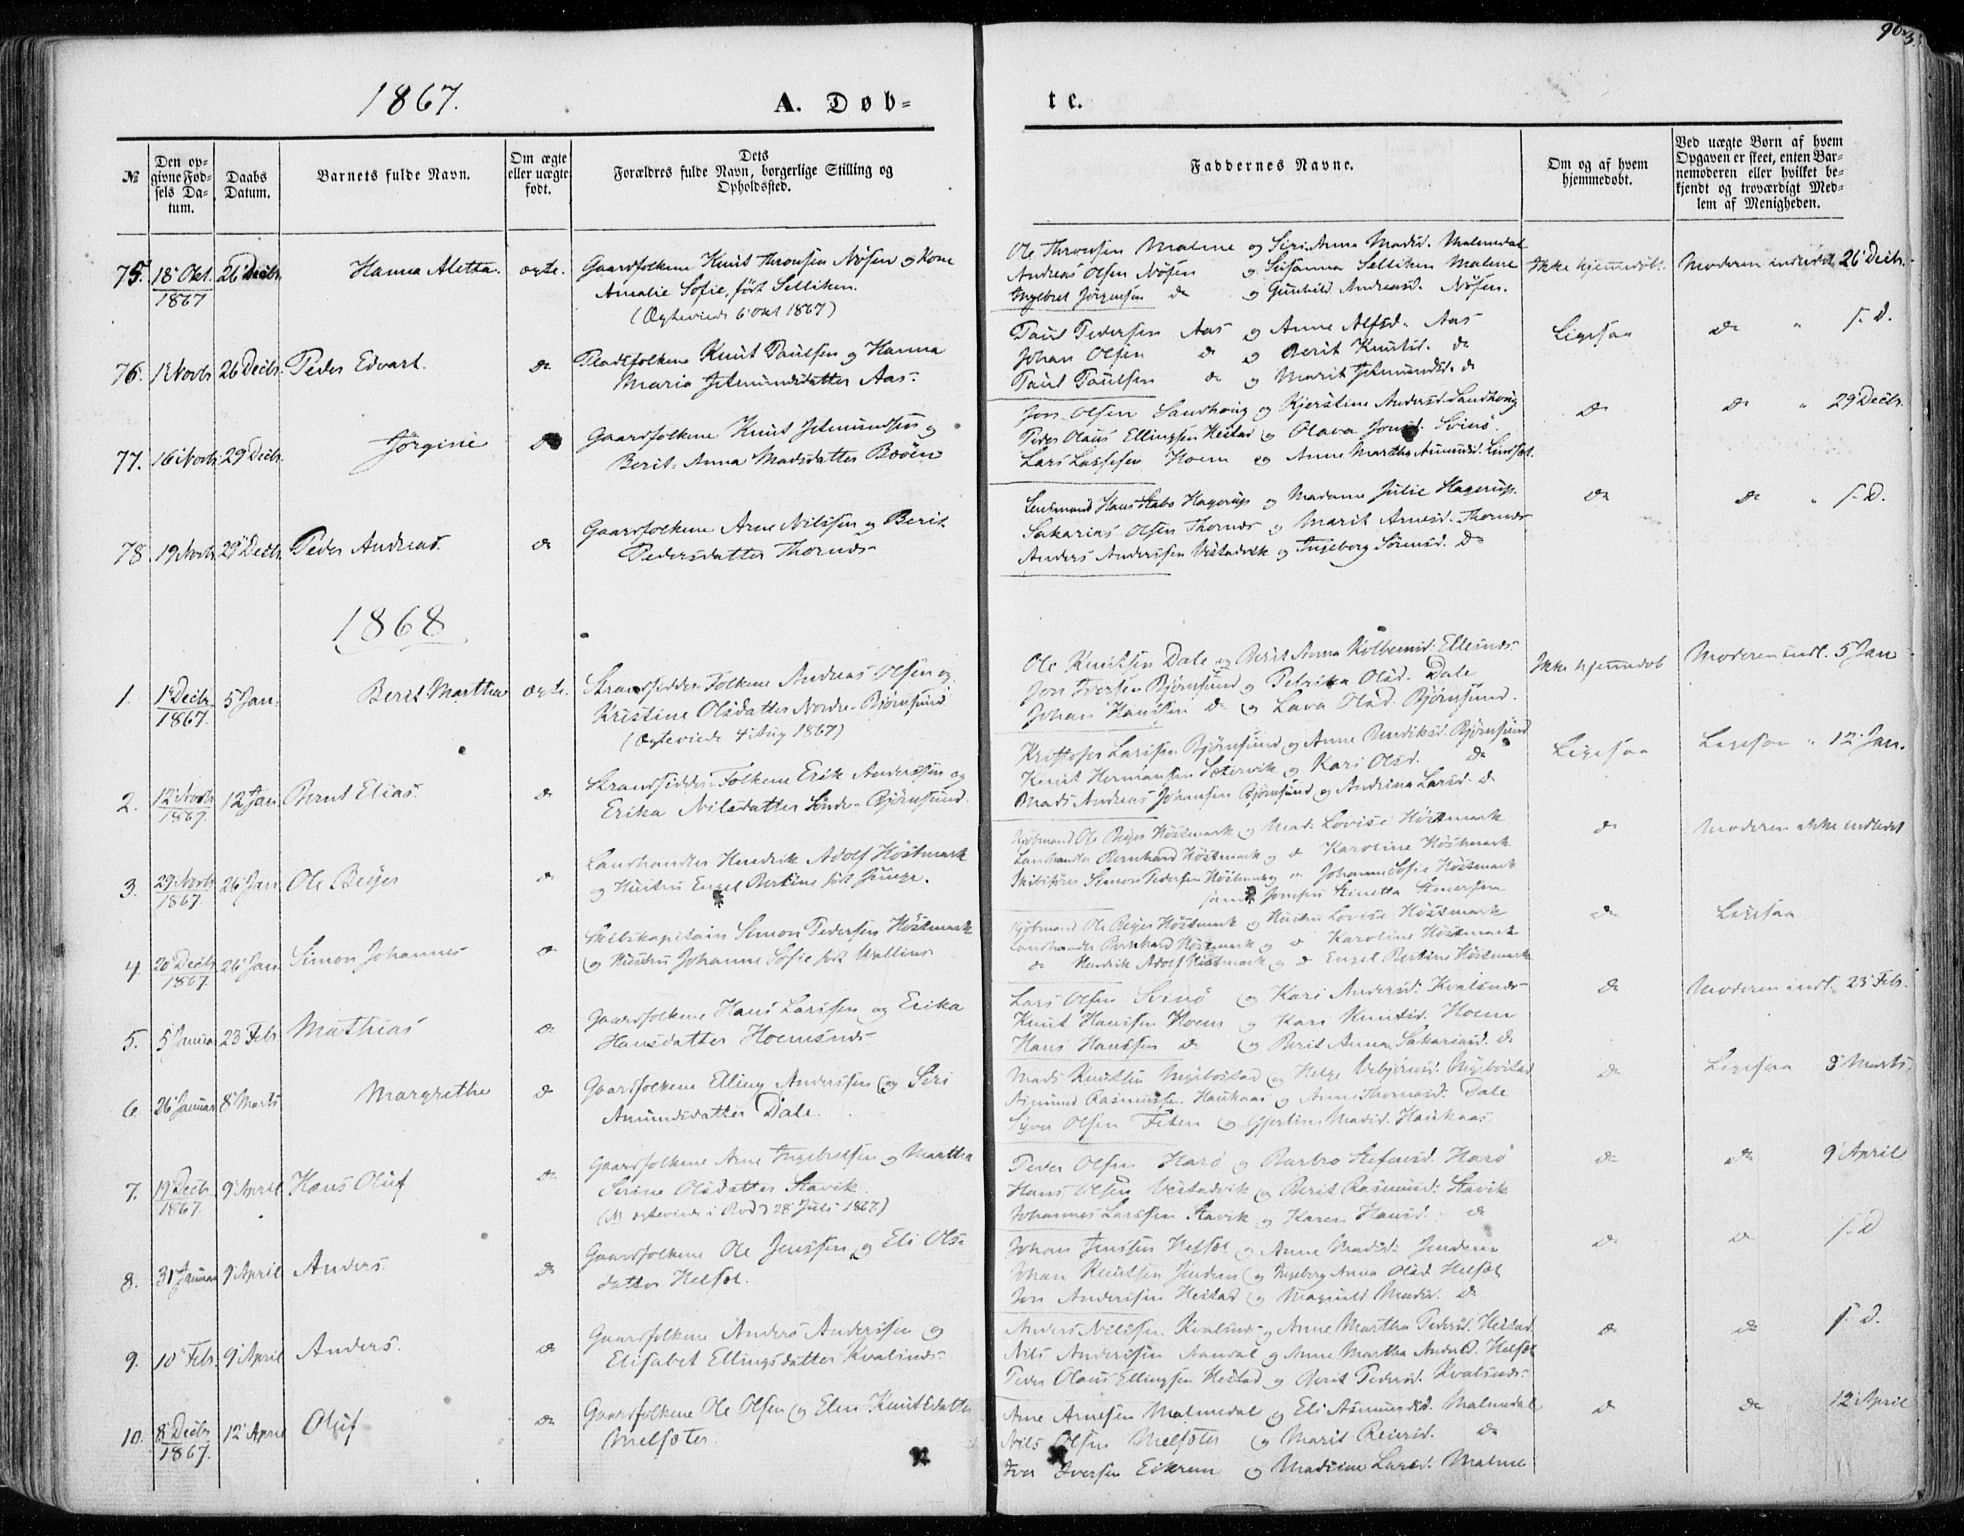 963.
1867.
A. Døb=
te.
№
Den op=
givne Fød=
sels Da=
tum.
Daabs
Datum.
Barnets fulde Navn.
Om ægte
eller uægte
født.
Dets
Forældres fulde Navn, borgerlige Stilling og
Opholdssted.
Faddernes Navne.
Om og af hvem
hjemmedøbt.
Ved uægte Børn af hvem
Opgaven er skeet, enten Bar=
nemoderen eller hvilket be=
kjendt og troværdigt Med=
lem af Menigheden.
75. 18 Okt. 1867 26 Decbr. Hanna Aletta. ægte.
Gaardfolkene Knut Thronsen Nøsen og Kone
Amalie Sofie, født Selliken.
(Ægteviede 6 Okt 1867)
Ole Thronsen Malme og Siri Anna Madsd. Malmedal
Andreas Olsen Nøsen og Susanna Selliken Malme
Ingebret Jørgensen do og Gunhild Andreasd. Nøsen.
Ikke hjemmedøbt. Moderen indledt 26 Decbr.
76. 1 Novbr. 26 Decbr. Peder Edvart. do
Pladsfolkene Knut Paulsen og Hanna
Maria Jetmundsdatter Aas.
Paul Pedersen Aas og Anne Alfsd. Aas
Johan Olsen do og Berit Knutsd. do
Paul Paulsen do og Marit Jetmundsd. do
Ligesaa do " s. D.
77. 16 Novbr. 29 Decbr. Jørgine do
Gaardfolkene Knut Jetmundsen og
Berit Anna Madsdatter Bøen
Jon Olsen Sandhoug og Kjerstine Andersd. Sandhoug
Peder Olaus Ellingsen Hestad og Olava Jonsd. Svinø.
Lars Larssen Hoem og Anne Martha Amundsd. Lindset.
do do " 29 Decbr.
78. 19 Novbr. 29 Decbr. Peder Andreas. do
Gaardfolkene Arne Nilssen og Berit
Pedersdatter Thornes
Lensmand Hans Stabo Hagerup og Madame Julie Hagerup.
Sakarias Olsen Thornes og Marit Arnesd. Thornes
Anders Anderssen Vestadvik og Ingeborg Sørensd. do
do do " s. D.
1868
1. 1 Decbr. 1867. 5 Jan. Berit Martha ægte.
Strandsidder Folkene Andreas Olsen og
Kristine Olsdatter Nordre-Bjørnsund
(Ægteviede 4 Aug 1867)
Ole Knutsen Dale og Berit Anna Kolbensd. Ellesnes
Jon Iversen Bjørnsund og Petrika Olsd. Dale
Johan Hanssen do og Lava Olsd. Bjørnsund.
Ikke hjemmedøb Moderen indl. 5 Jan
2. 12 Novbr. 1867. 12 Jan. Bernt Elias. do
Strandsidder Folkene Erik Anderssen og
Erika Nilsdatter Søndre-Bjørnsund.
Kristofer Larssen Bjørnsund og Anne Bendiksd. Bjørnsund
Knut Hermansen Setervik og Kari Olsd. do
Mads Andreas Johansen Bjørnsund og Andrina Larsd. do
Ligesaa Ligesaa " 12 Jan.
3. 29 Novbr. 1867. 26 Jan. Ole Beyer do
Landhandler Hendrik Adolf Höstmark
og Hustru Engel Bertine født Junge.
Kjøbmand Ole Beyer Höstmark og Mad. Lovise Höstmark
Landhandler Bernhard Höstmark og do Karoline Höstmark
Skibsfører Simon Pedersen Höstmark og do Johanne Sofie Höstmark
samt Jomfru Stinetta Simonsen
do Moderen ikke indledet
4. 20 Decbr. 1867. 26 Jan. Simon Johannes do
Skibskapitain Simon Pedersen Höstmark
og Hustru Johanne Sofie født Wallin
Kjøbmand Ole Beyer Höstmark og Hustru Lovise Höstmark
Landhandler Bernhard Höstmark og do Karoline Höstmark
do Hendrik Adolf Höstmark og do Engel Bertine Höstmark
do Ligesaa
5. 5 Januar 23 Febr. Mathias do
Gaardfolkene Hans Larssen og Erika
Hansdatter Hoemsnes
Lars Olsen Svinø og Kari Andersd. Kvalsnes
Knut Hanssen Hoem og Kari Knutsd. Hoem
Hans Hanssen do og Berit Anna Sakariasd. do
do Moderen indl. 23 Febr.
6. 26 Januar 8 Marts Margrethe do
Gaardfolkene Elling Anderssen og Siri
Amundsdatter Dale.
Mads Knutsen Ingebostad og Helge Vebjørnsd. Ingebostad
Asmund Rasmussen Haukaas og Anne Thomasd. Dale
Syver Olsen Feten og Gjertine Madsd. Haukaas.
do Ligesaa 8 Marts.
7. 19 Decbr. 1867. 9 April Hans Oluf do
Gaardfolkene Arne Ingebretsen og Martha
Serine Olsdatter Stavik.
(NB ægteviede i Bud d 28 Juli 1867.)
Peder Olsen Harø og Barbro Stefensd. Harø
Hans Olsen Vestadvik og Berit Rasmusd. Stavik
Johannes Larssen Stavik og Karen Hansd. do
do do 9 April
8. 31 Januar 9 April Anders do
Gaardfolkene Ole Jenssen og Eli Ols=
datter Helset.
Johan Jenssen Helset og Anne Madsd. Jendem
Johan Knutsen Jendem og Ingeborg Anna Olsd. Helset
Jon Anderssen Hestad og Magnild Madsd. do
do do s. D
9. 10 Febr. 9 April Anders. do
Gaardfolkene Anders Anderssen og
Elisabet Ellingsdatter Kvalsnes.
Anders Nilssen Kvalsnes og Anne Martha Pedersd. Hestad
Nils Anderssen Aandal og Anne Martha Andsd. Helset
Peder Olaus Ellingsen Hestad og Berit Pedersd. Kvalsnes.
do do s. D.
10. 8 Decbr. 1867. 12 April Oluf do
Gaardfolkene Ole Olsen og Elen Knutsdatter
Melseter.
Arne Arnesen Malmedal og Eli Asmundsd. Malmedal
Nils Olsen Melseter og Marit Reiersd. do
Iver Iversen Eikrem og Madsine Larsd. Malme
do do 12 April